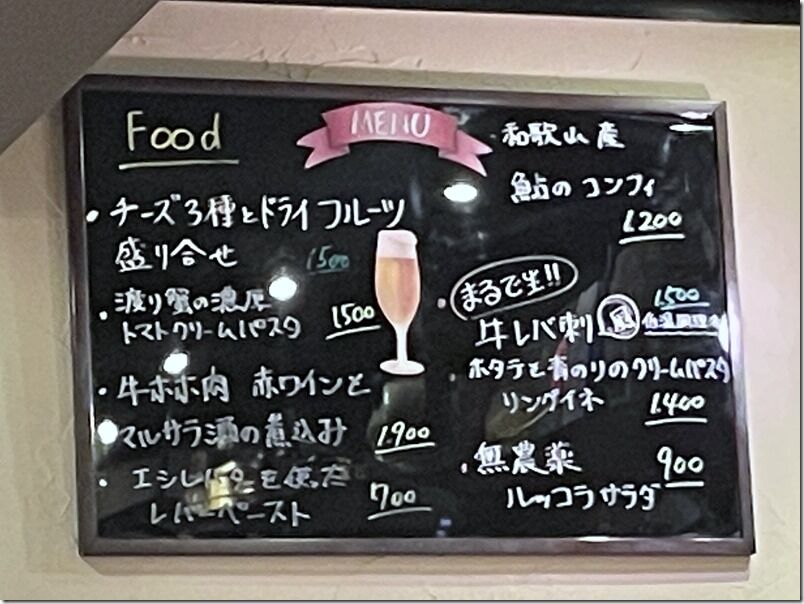 Food
MENU
• チーズ3種とドライフルーツ
盛り合せ 1500
• 渡り蟹の濃厚
トマトクリームパスタ 1500
• 牛ホホ肉 赤ワインと
マルサラ酒の煮込み 1.900
• エシレバターを使った
レバーペースト 700
• 和歌山産
鮎のコンフィ
1.200
• まるで生!!
1500
牛レバ刺し 風 低温調理
ホタテと青のりのクリームパスタ
リングイネ 1.400
• 無農薬 900
ルッコラサラダ